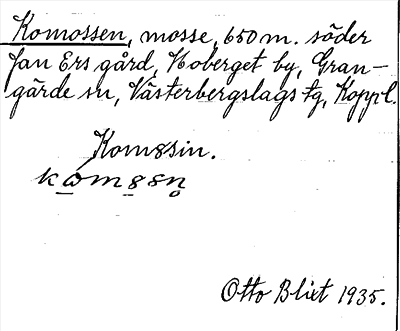 Komossen, mosse, 650 m. söder
Jan Ers gård, Hoberget by, Gran-
gärde sn, Västerbergslags fg, Koppl.
Komssin.
kωmssn̥
Otto Blixt 1935.